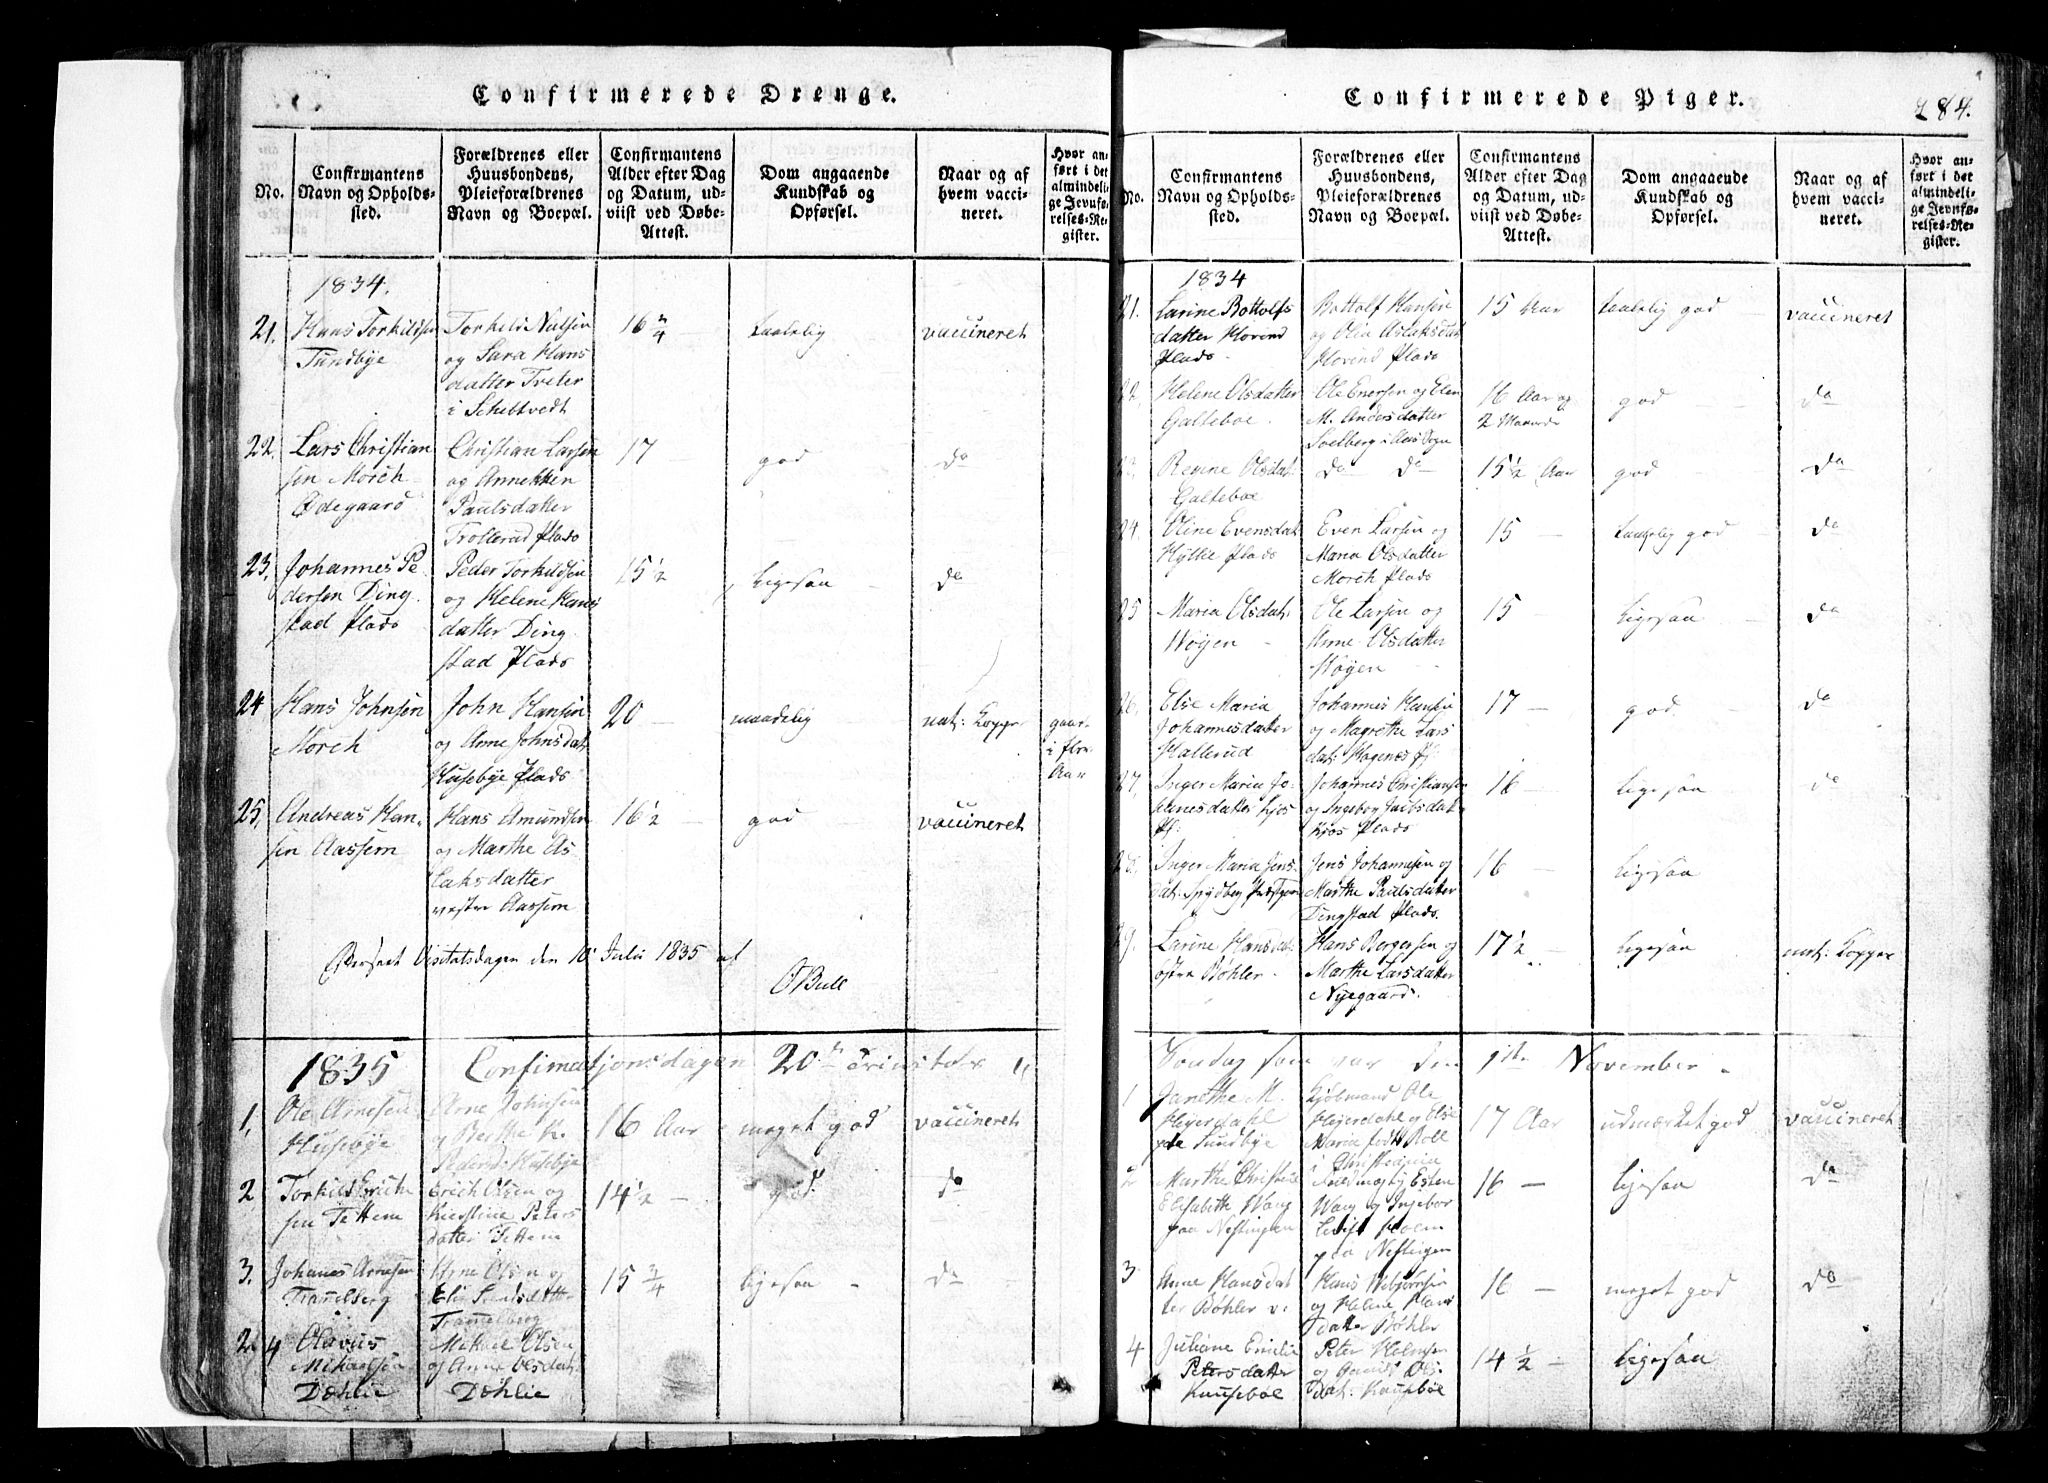 Confirmerede Drenge.
No.
Confirmantens
Navn og Opholds-
sted.
Forældrenes eller
Huusbondens,
Pleieforældrenes
Navn og Boepæl.
Confirmantens
Alder efter Dag
og Datum, ud-
viist ved Døbe-
Attest.
Dom angaaende
Kundskab og
Opførsel.
Naar og af
hvem vacci-
neret.
Hvor an-
ført i det
almindeli-
ge Jevnfø-
relses-Re-
gister.
1834.
21. Hans Torkildsen
Tundbye
Torkild Nielsen
og Sara Hans
datter Tveter
i Schibtvedt
16 3/4
taalelig
vaccineret
22. Lars Christian
sen Morch
Ødegaard
Christian Larsen
og Annekken
Paulsdatter
Trollerud Plads
17
god
do
23. Johannes Pe
dersen Ding
stad Plads
Peder Torkildsen
og Helene Hans
datter Ding
stad Plads
15 1/2
ligesaa
do
24 Hans Johnsen
Morch
John Hansen
og Anne Johnsdat
Husebye Plads
20
maadelig
nat: Kopper
gaar
i
Aar
25. Andreas Han-
sen Aassem
Hans Amundsen
og Marthe As
laksdatter
vestre Aassem
16 1/2
god
vaccineret
Visitatsdagen den 10 Julii 1835 af
O Bull
1835 Confirmatjonsdagen 20de Trinitatis
1, Ole Arnesen
Husebye
Arne Johnsen
og Berthe K.
Pedersd: Husebye
16 Aar
meget god
vaccineret
2, Torkild Erich
sen Tettem
Erich Olsen og
Kierstine Peters
datter Tettem
14 1/2
god
do
3. Johanes Arnesen
Tranelberg
Arne Olsen og
Tranelberg
15 3/4
ligesaa
do
4 Olavus
Mikaelsen
Dæhlie
Mikael Olsen
og Anne Olsdat
Dæhlie
Confirmerede Piger.
284.
No.
Confirmantens
Navn og Opholds-
sted.
Forældrenes eller
Huusbondens,
Pleieforældrenes
Navn og Boepæl.
Confirmantens
Alder efter Dag
og Datum, ud-
viist ved Døbe-
Attest.
Dom angaaende
Kundskab og
Opførsel.
Naar og af
hvem vacci-
neret.
Hvor an-
ført i det
almindeli-
ge Jevnfø-
relses-Re-
gister.
1834
21. Larine Bottolfs
datter Hovind
Plads
Bottolf Hansen
og Olia Aslaksdat
Hovind Plads
15 Aar
taalelig god
vaccineret
22, Helene Olsdatter
Galteboe
Ole Evensen og Elen
M. Andersdatter
Solberg i Aas Sogn
16 Aar og
2 Maaneder
god
do
23. Renne Olsdat:
Galteboe
do do
15 1/2 Aar
god
do
24. Oline Evensdat
Hytte Plads
Even Larsen og
Maria Olsdatter
Morch Plads
15
taalelig god
do
25 Maria Olsdat:
Høgen
Ole Larsen og
Anne Olsdatter
Høgen
15
ligesaa
do
26, Else Maria
Johannesdatter
Hallerud
Johannes Hansen
og Magrethe Lars
dat: Hagenes Pl
17
god
do
27, Inger Maria Jo-
hannesdatter Kjos
Pl:
Johannes Christiansen
og Ingeborg Jacobsdat
Kjos Plads
16
ligesaa
do
28. Inger Maria Jens
dat: Spydbeg Præstgaar
Jens Johannesen og
Marthe Paulsdatter
Dingstad Plads
16
ligesaa
29. Larine Hansdat:
østre Bøhler
Hans Borgersen og
Marthe Larsdatter
Nygaard.
17 1/2
ligesaa
nat: Kopper
Søndag som var den 1ste November.
1 Janethe M.
Heyerdahl
paa Tundbye
Kjøbmand Ole
Heyerdahl og Else
Maria født Roll
i Christiania
17 Aar
udmærket god
vaccineret
2 Marthe Christine
Elisabeth Wang
paa Neslingen
Esten
Wang og Ingebor
Holm
paa Neslingen
16
ligesaa
do
3 Anne Hansdat
ter Bøhler v.
Hans
og Helene Hans
datter Bøhler
16
meget god
do
4 Juliane Emilie
Petersdatter
Knuseboe
Peter Helmsen
og
dat:
14 1/2
ligesaa